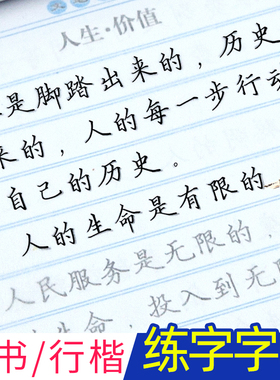 人生·价值
是脚踏出来的，历史
来的，人的每一步行动
自己的历史。
人的生命是有限的
人民服务是无限的，
生命，投入到无
书/行楷 练字字